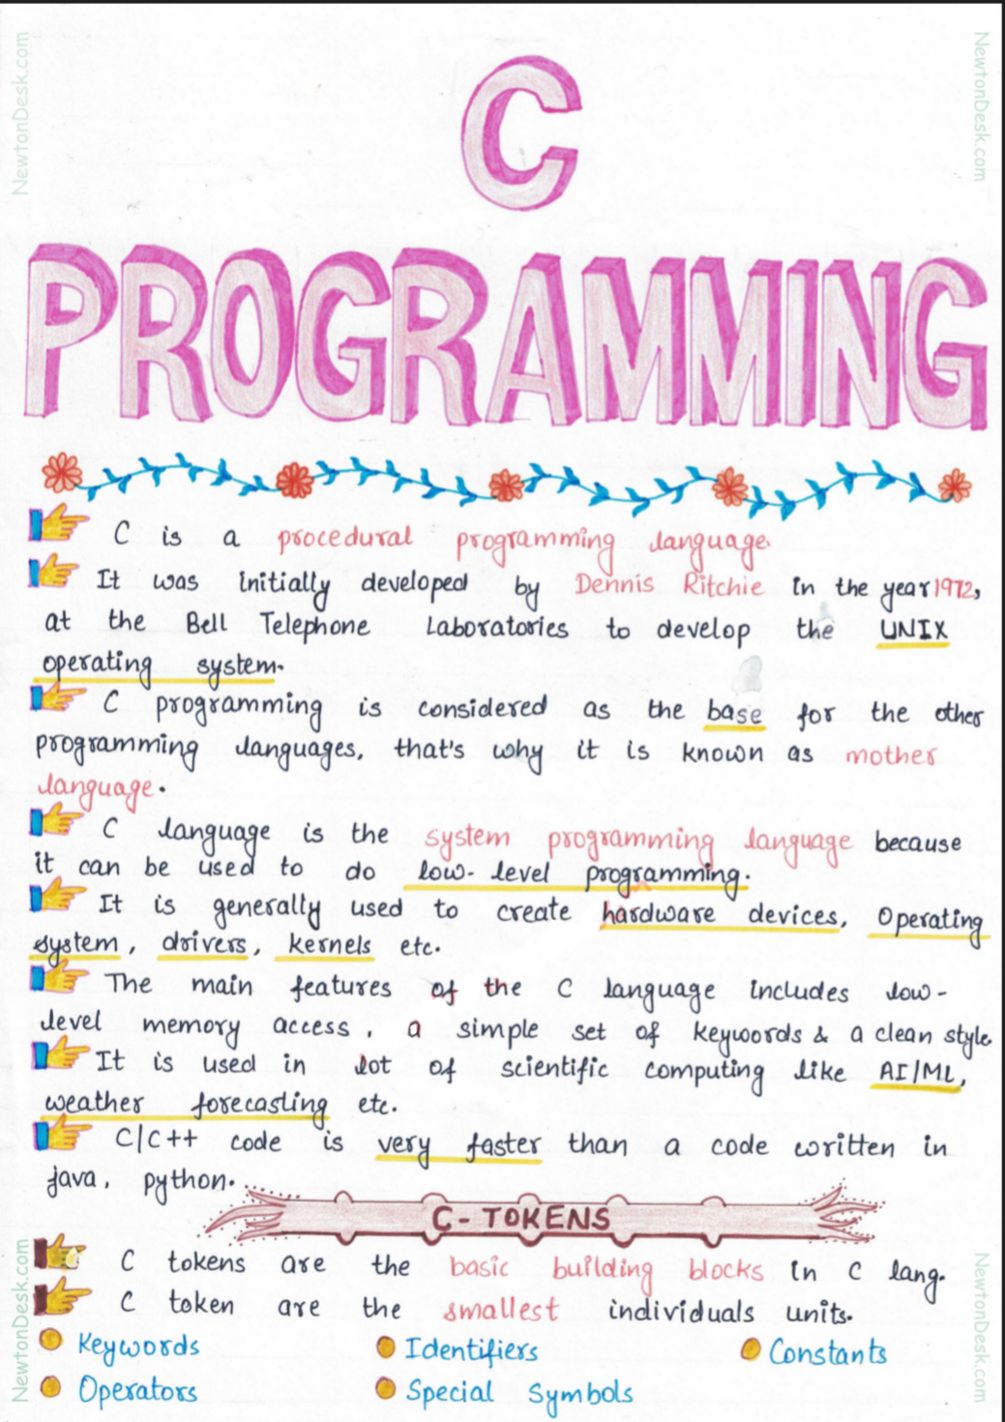 NewtonDesk.com
NewtonDesk.com
C
PROGRAMMING
C is a procedural programming language.
It was initially developed by Dennis Ritchie in the year 1972,
at the Bell Telephone Laboratories to develop the UNIX
operating system.
C programming is considered as the base for the other
programming languages, that's why it is known as mother
language.
C language is the system programming language because
it can be used to do low-level programming.
It is generally used to create hardware devices, Operating
system, drivers, kernels etc.
The main features of the C language includes low-
level memory access, a simple set of keywords & a clean style.
It is used in lot of scientific computing like AI/ML,
weather forecasting etc.
C/C++ code is very faster than a code written in
java, python.
C-TOKENS
C tokens are the basic building blocks in C lang.
C token are the smallest individuals units.
Keywords Identifiers Constants
Operators Special Symbols
NewtonDesk.com
NewtonDesk.com